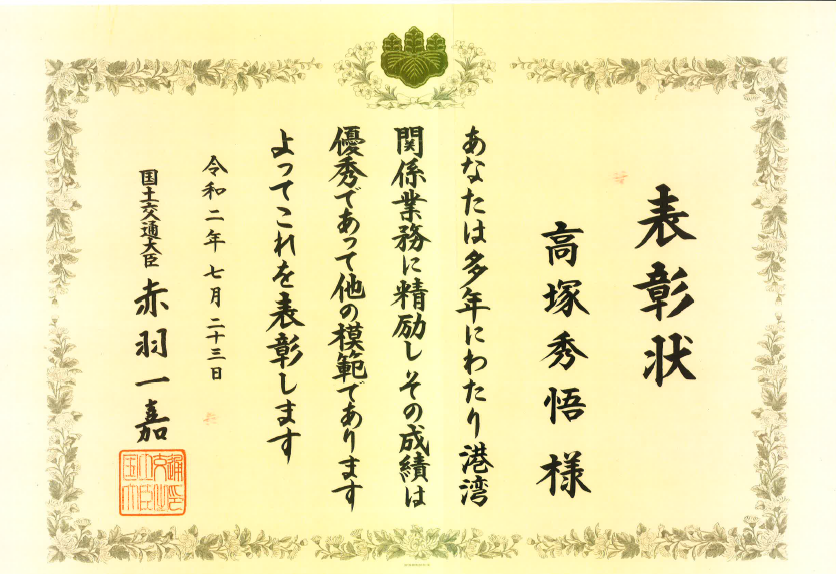 表彰状
高塚秀悟 様
あなたは多年にわたり港湾
関係業務に精励しその成績は
優秀であって他の模範であります
よってこれを表彰します
令和二年七月二十三日
国土交通大臣 赤羽一嘉